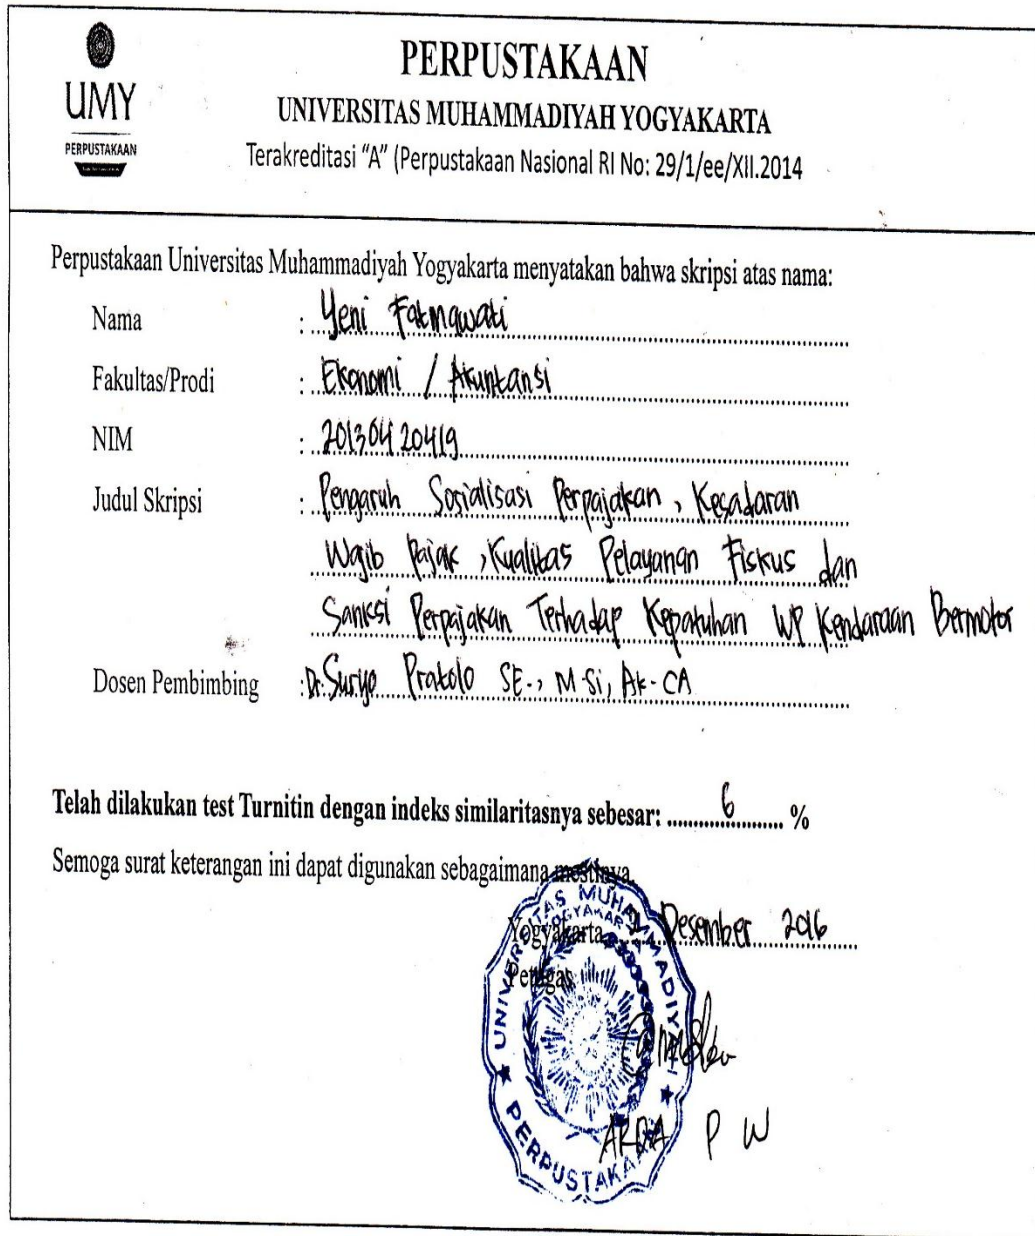 UMY
PERPUSTAKAAN
PERPUSTAKAAN
UNIVERSITAS MUHAMMADIYAH YOGYAKARTA
Terakreditasi "A" (Perpustakaan Nasional RI No: 29/1/ee/XII.2014
Perpustakaan Universitas Muhammadiyah Yogyakarta menyatakan bahwa skripsi atas nama:
Nama : Yeni Fatmawati
Fakultas/Prodi : Ekonomi / Akuntansi
NIM : 20130420419
Judul Skripsi : Pengaruh Sosialisasi Perpajakan, Kesadaran
Wajib Pajak, Kualitas Pelayanan Fiskus dan
Sanksi Perpajakan Terhadap Kepatuhan WP Kendaraan Bermotor
Dosen Pembimbing : Dr. Suryo Pratolo SE., M Si, Ak-CA
Telah dilakukan test Turnitin dengan indeks similaritasnya sebesar: 6 %
Semoga surat keterangan ini dapat digunakan sebagaimana mestinya.
Yogyakarta, Desember 2016
Petugas
UNIVERSITAS MUHAMMADIYAH
YOGYAKARTA
PERPUSTAKAAN
P W